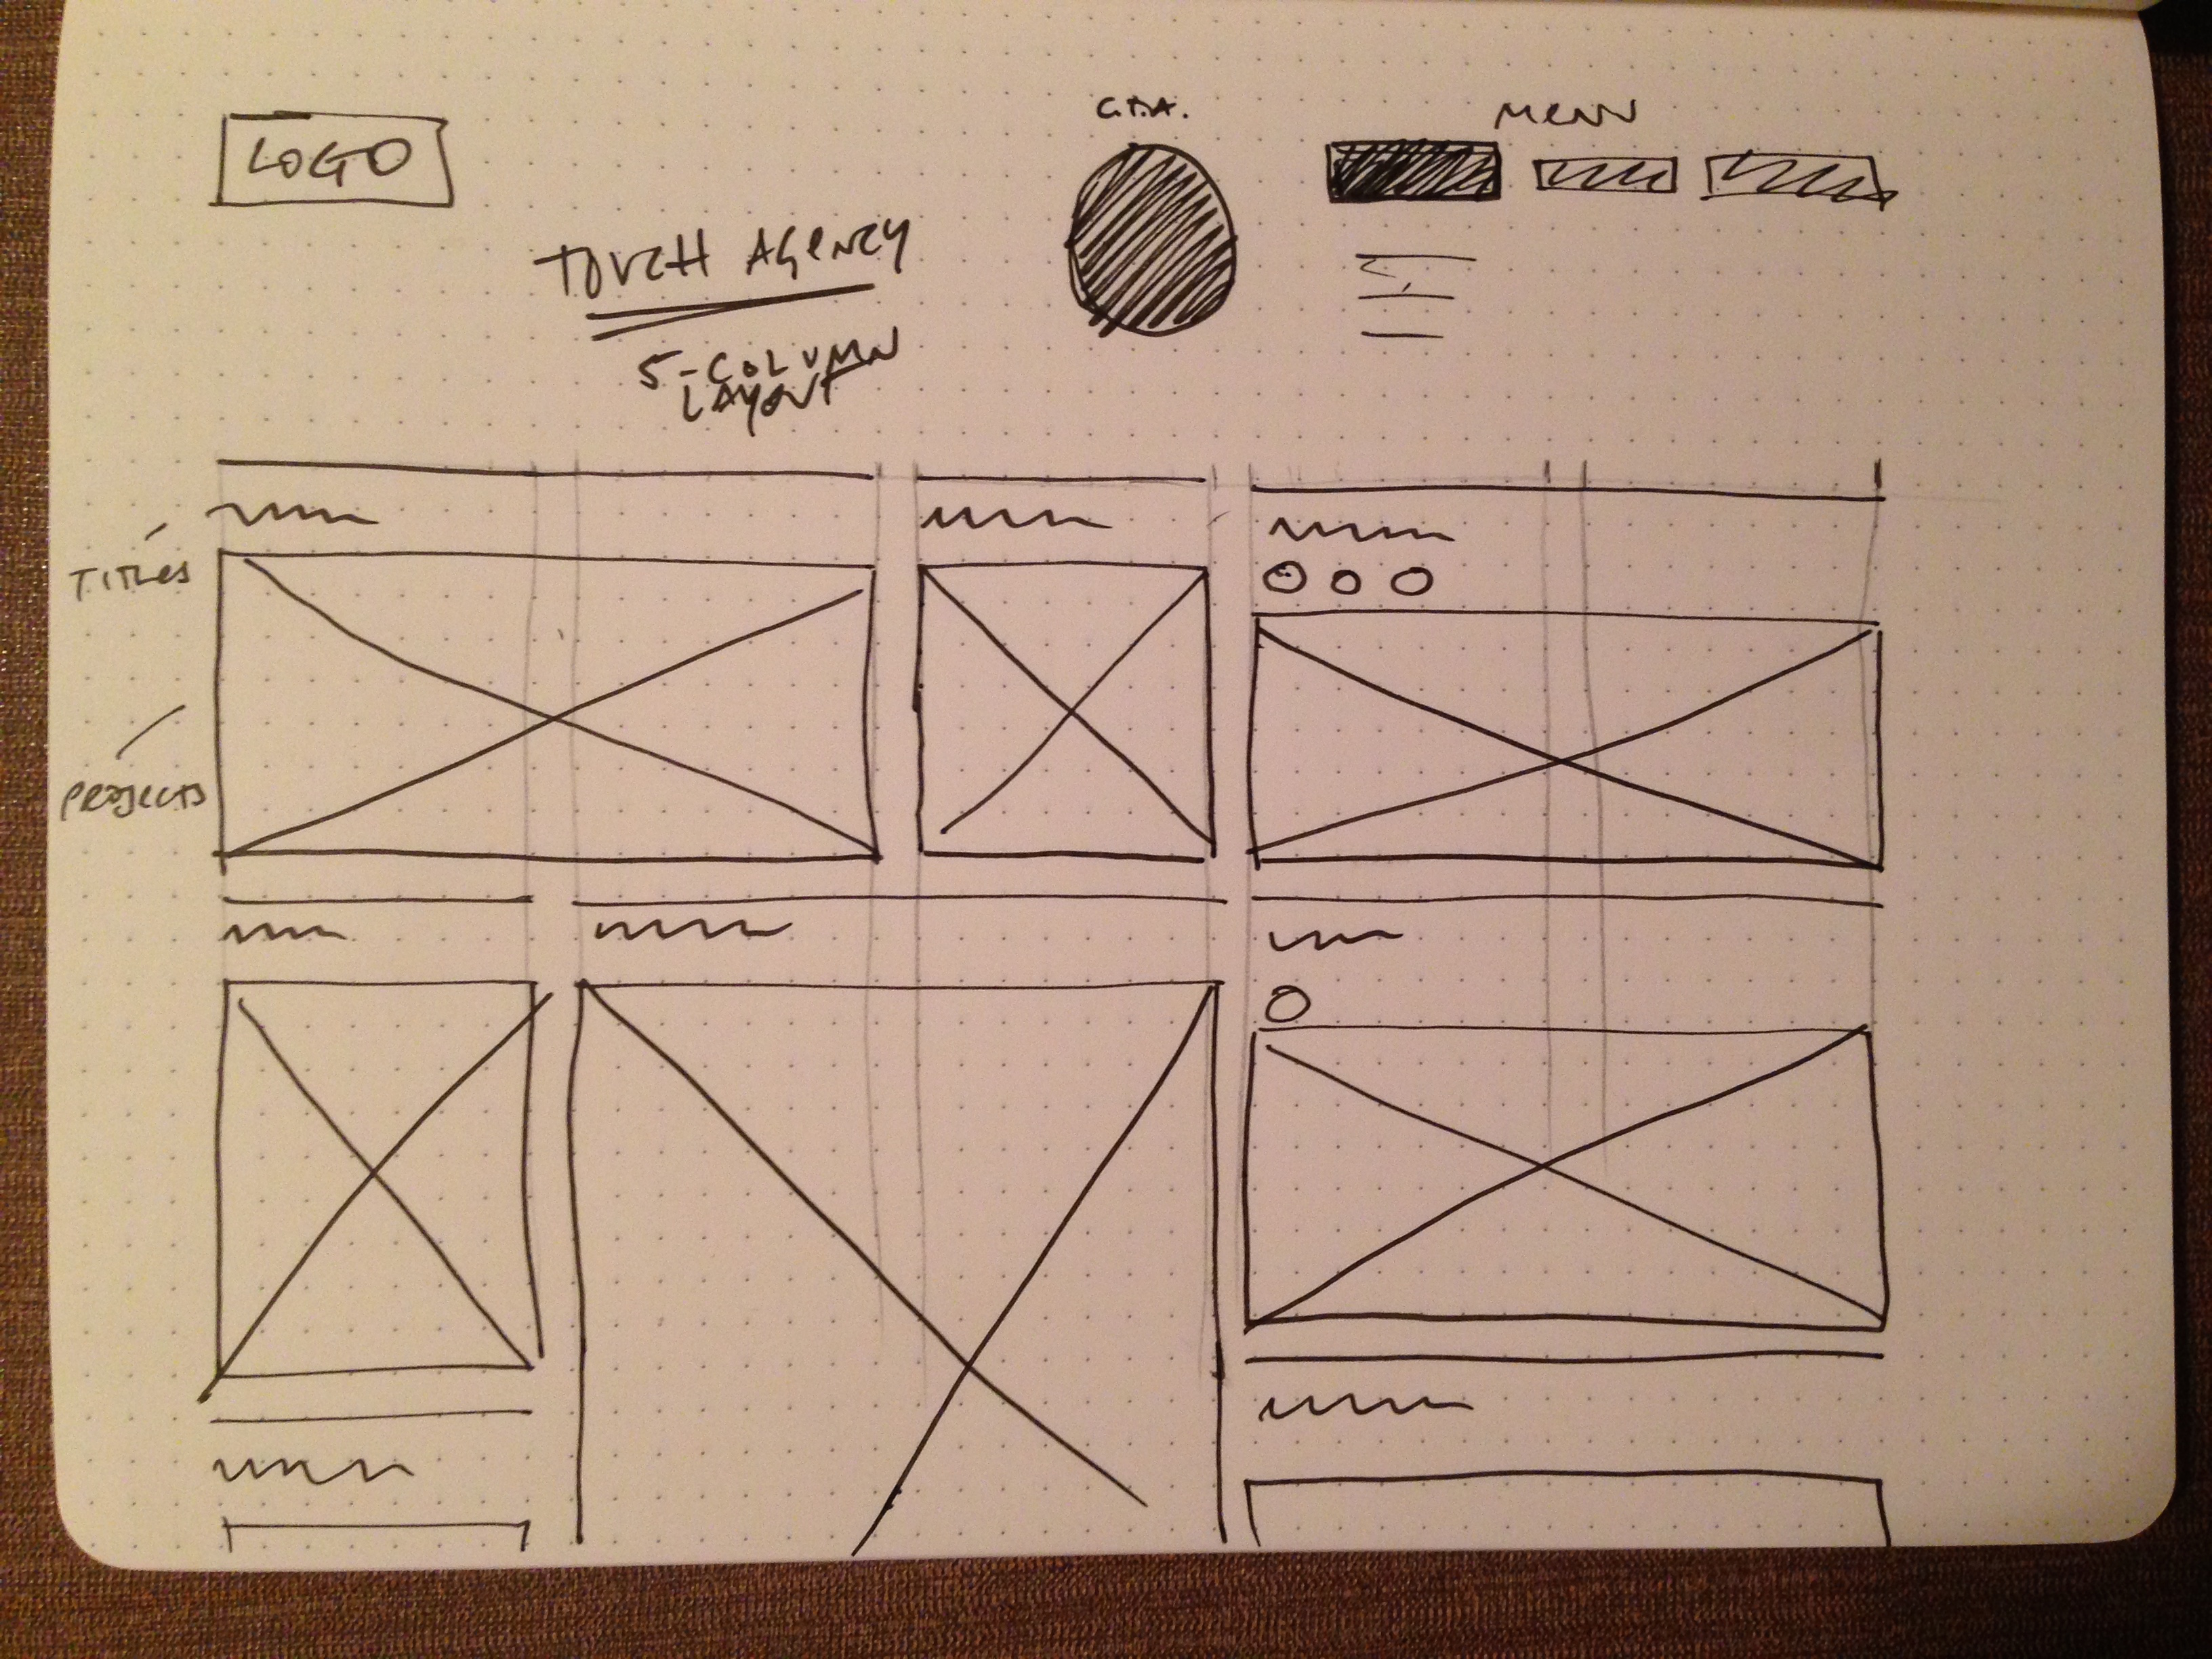 C.T.A.
MENU
LOGO
TOUCH AGENCY
5-COLUMN
LAYOUT
TITLES
PROJECTS